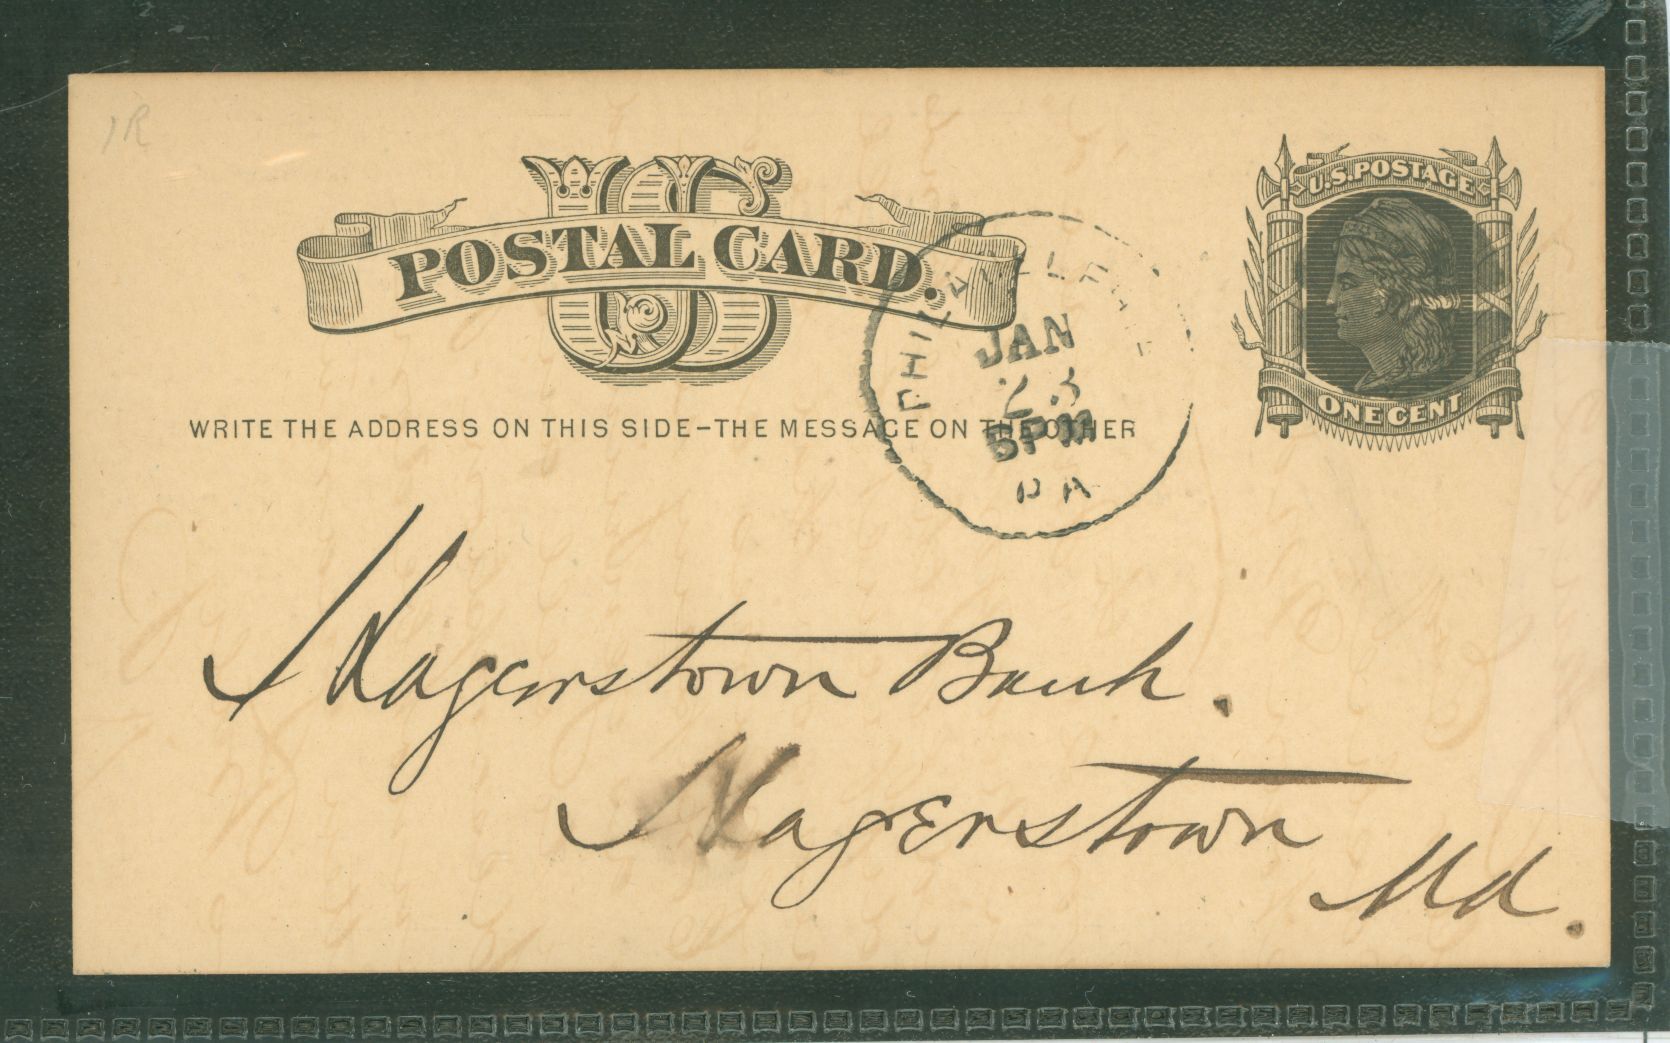 1R
US
POSTAL CARD.
U.S. POSTAGE
ONE CENT
WRITE THE ADDRESS ON THIS SIDE-THE MESSAGE ON THE OTHER
PHILADELPHIA
JAN
23
5PM
PA
Hagerstown Bank.
Hagerstown
Md.